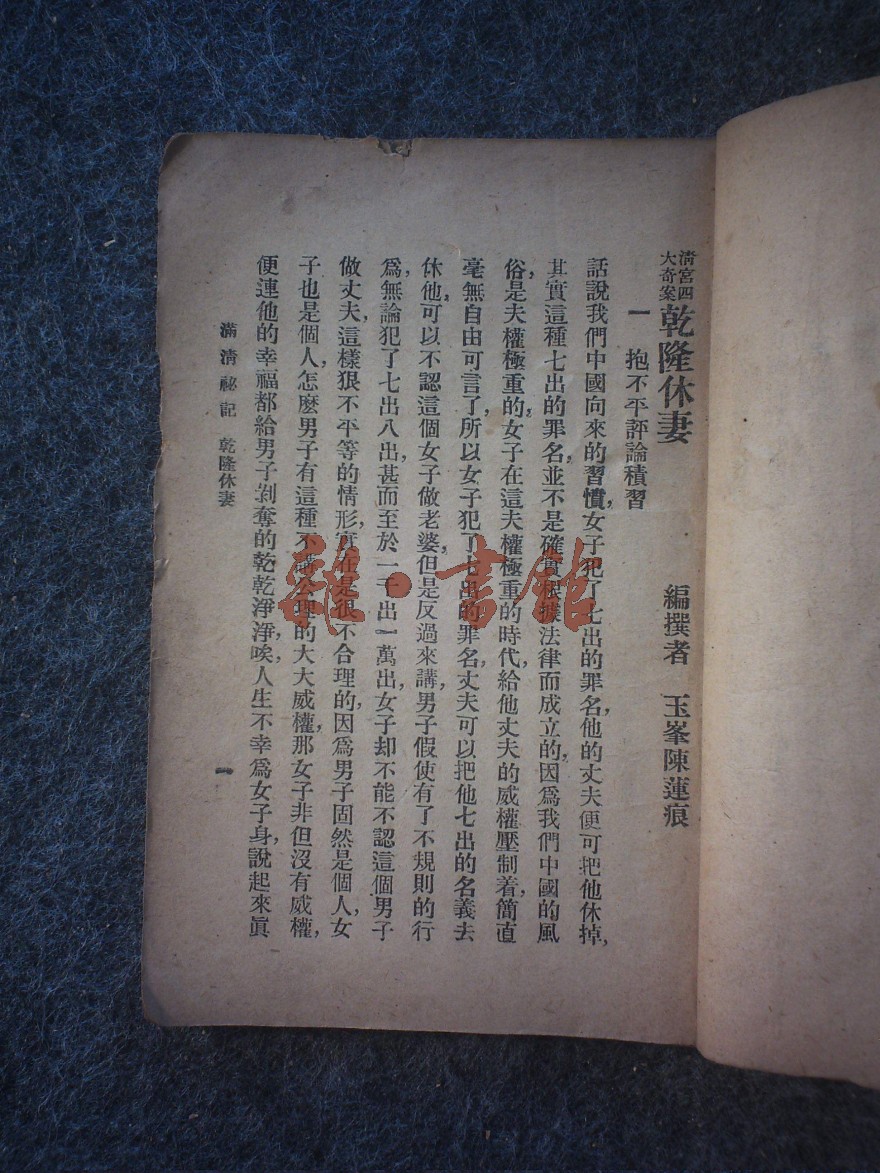 清宮四大奇案 乾隆休妻　編撰者　玉峯陳蓮痕
一　抱不平評論積習
話說我們中國向來的習慣，女子犯了七出的罪名，他的丈夫便可把他休掉，
其實這種七出的罪名，並不是確實根據法律而成立的，因爲我們中國的風
俗，是夫權極重的，女子在這夫權極重的時代，給他丈夫的威權壓制着，簡直
毫無自由可言了，所以女子犯了七出的罪名，丈夫可以把他七出的名義去
休他，可以不認這個女子做老婆，但是反過來講，男子假使有了不規則的行
爲，無論犯了七出八出，甚而至於一千出一萬出，女子却不能不認這個男子
做丈夫，這樣狠不平等的情形，實在是很不合理的，因爲男子固然是個人，女
子也是個人，怎麼男子有這種不講公理的大大威權，那女子非但沒有威權，
便連他的幸福都給男子剝奪的乾乾淨淨，唉，人生不幸爲女子身，說起來眞
滿清祕記　乾隆休妻
一
雜·書館